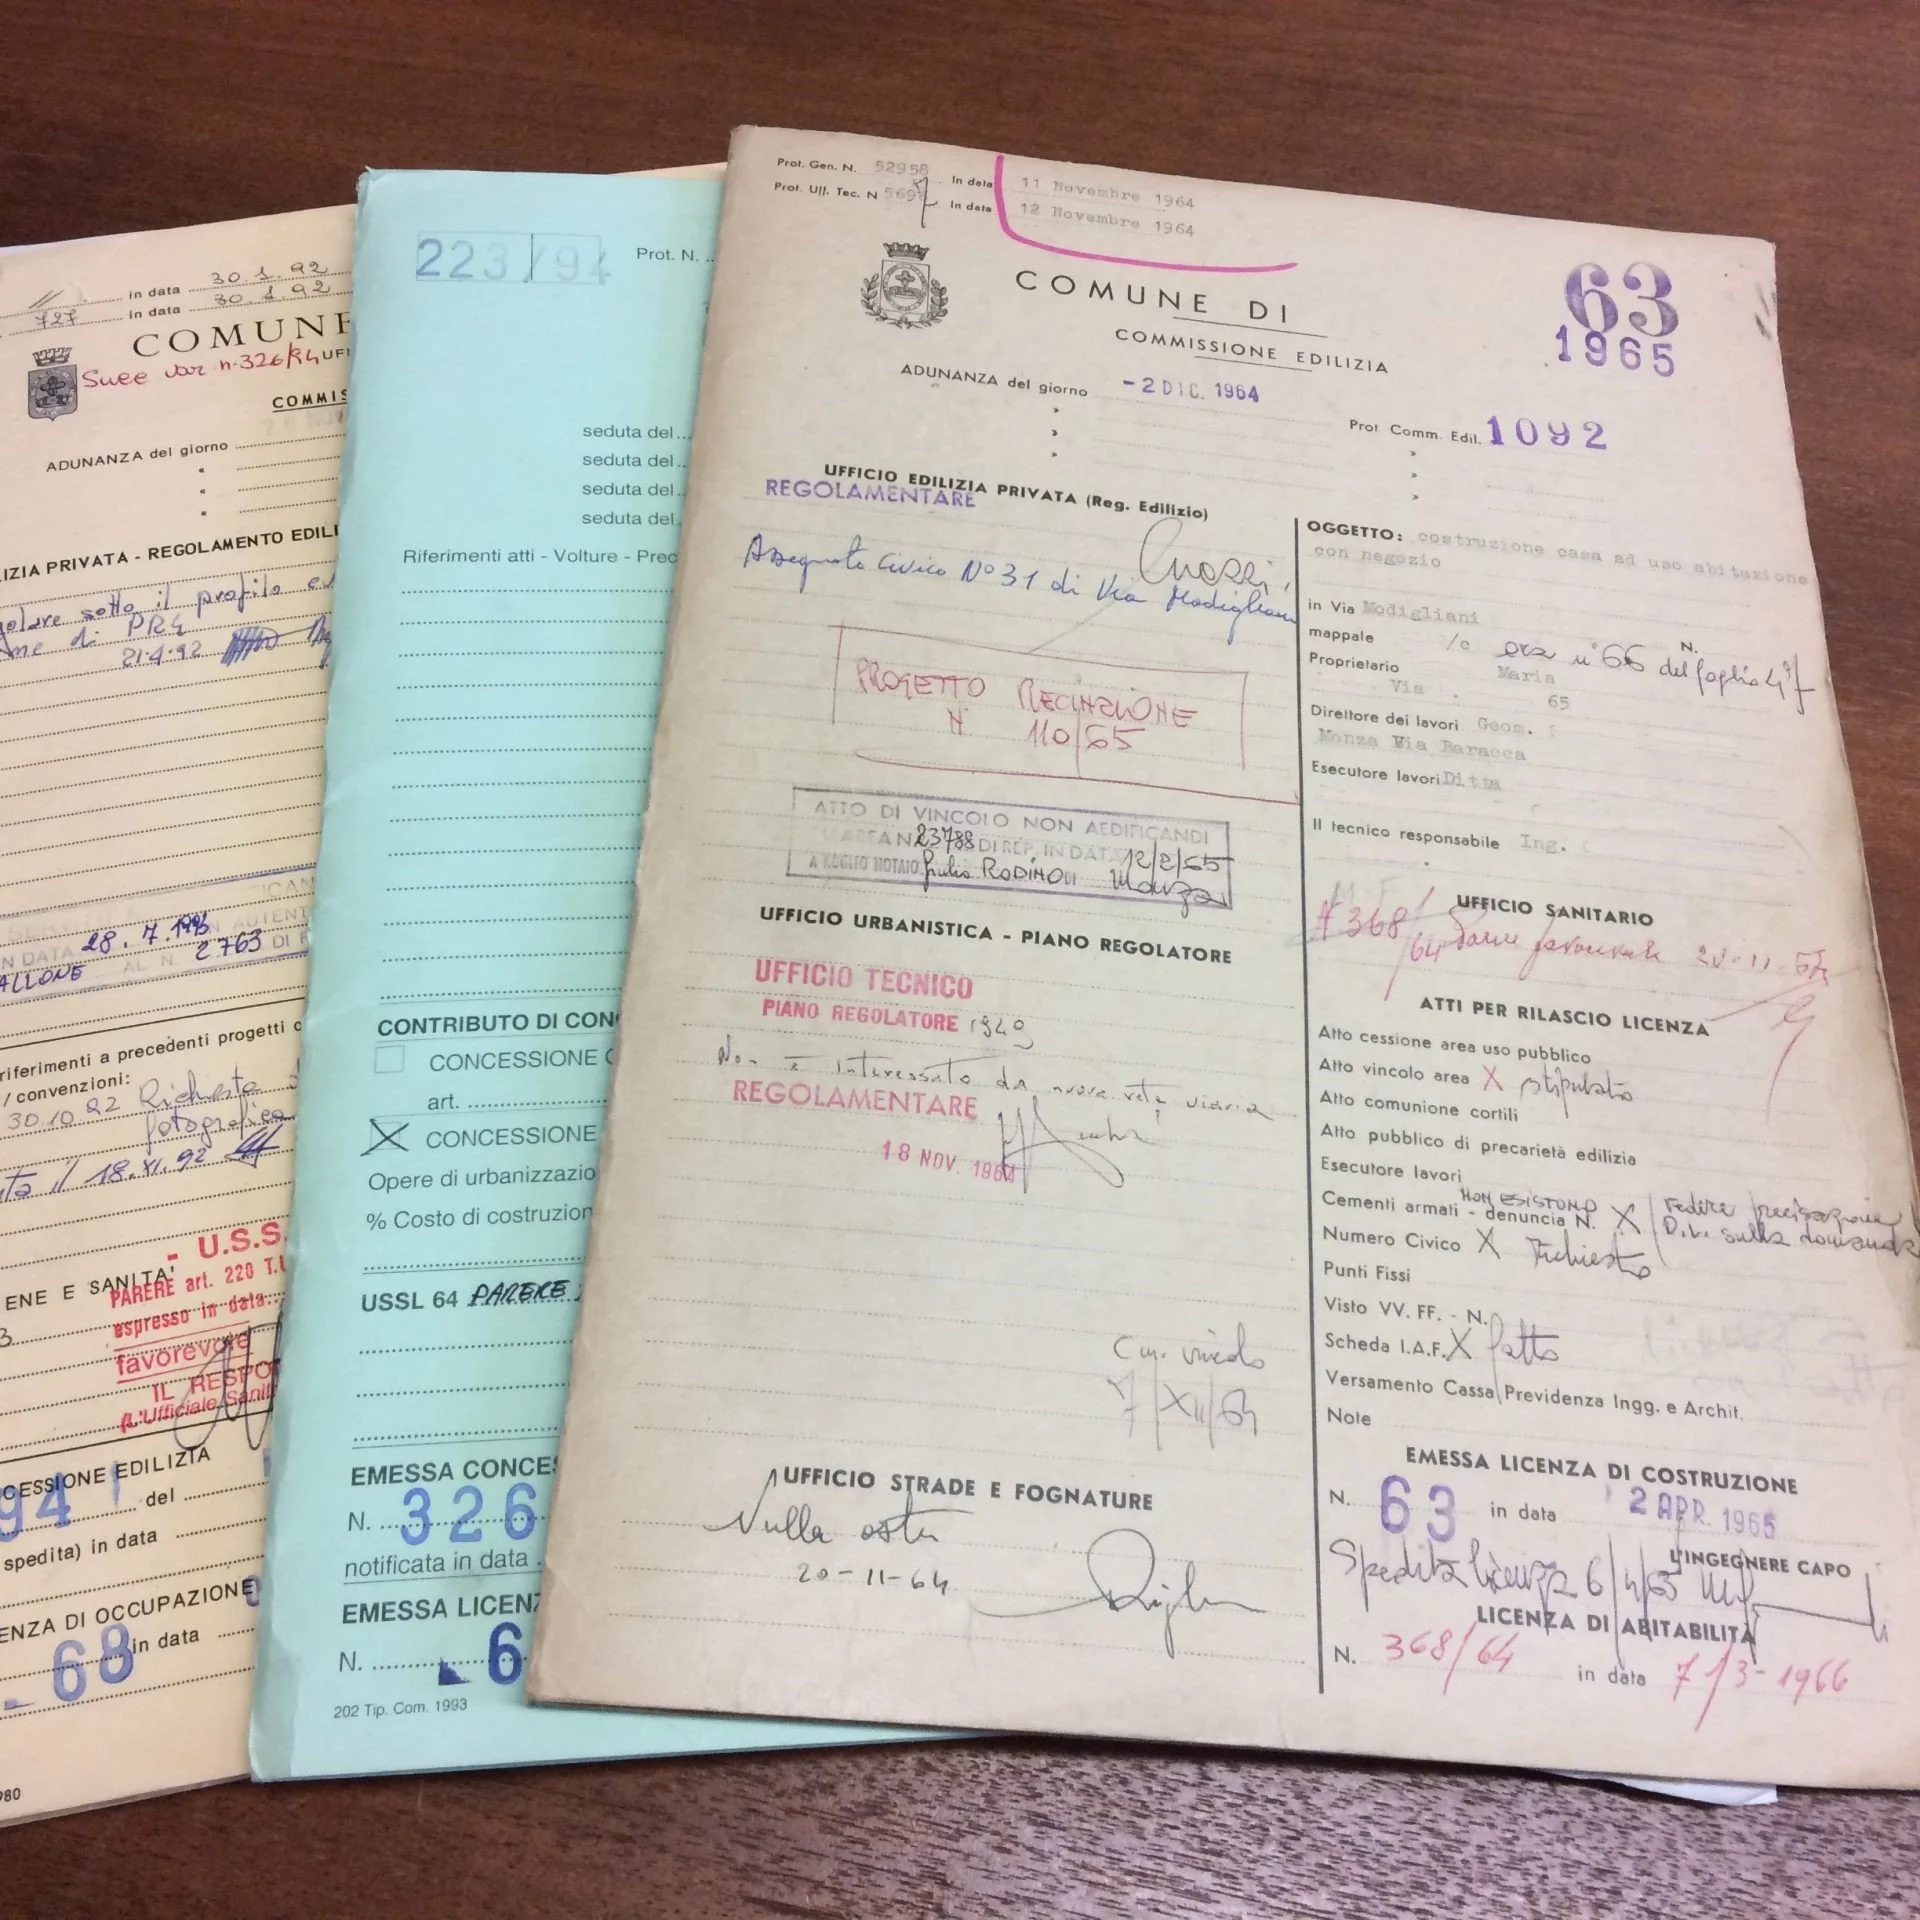 in data 30.1.92
727 in data 30.1.92
COMUNE
Succ var n. 326/94 UFF
COMMIS
ADUNANZA del giorno
IZIA PRIVATA - REGOLAMENTO EDILI
sotto il profilo
di PRG
21.4.92
28.7.1993
IN DATA AL N. 2763 DI
ALLONE
riferimenti a precedenti progetti
/ convenzioni:
30.10.92 Richiesta
fotografica
il 18.XI.92
- U.S.S.
ENE E SANITA'
PARERE art. 220 T.U
espresso in data
favorevole
IL RESPO
(L'Ufficiale Sanit
CESSIONE EDILIZIA
94 del
spedita) in data
ENZA DI OCCUPAZIONE
68 in data
980
223/94 Prot. N.
seduta del
seduta del
seduta del
seduta del
Riferimenti atti - Volture - Prec
CONTRIBUTO DI CON
CONCESSIONE
art.
X CONCESSIONE
Opere di urbanizzazio
% Costo di costruzion
USSL 64 PARERE
EMESSA CONCES
N. 326
notificata in data
EMESSA LICENZ
N. 6
202 Tip. Com. 1993
Prot. Gen. N. 52958 In data 11 Novembre 1964
Prot. Uff. Tec. N 569 In data 12 Novembre 1964
COMUNE DI
COMMISSIONE EDILIZIA
63
1965
ADUNANZA del giorno - 2 DIC. 1964
Prot Comm. Edil. 1092
UFFICIO EDILIZIA PRIVATA (Reg. Edilizio)
REGOLAMENTARE
Assegnato Civico N° 31 di Via Modigliani
PROGETTO RECINZIONE
N. 110/65
ATTO DI VINCOLO NON AEDIFICANDI
AREA N 23788 DI REP. IN DATA 12/2/65
A ROGITO NOTAIO Giulio RODINO DI Monza
UFFICIO URBANISTICA - PIANO REGOLATORE
UFFICIO TECNICO
PIANO REGOLATORE 1949
Non è interessato da nuova rete viaria
REGOLAMENTARE
18 NOV. 1964
Con vincolo
7/XII/64
UFFICIO STRADE E FOGNATURE
Nulla osta
20-11-64
OGGETTO: costruzione casa ad uso abitazione
con negozio
in Via Modigliani
mappale /c ora n° 66 N. del foglio 47
Proprietario Maria
Via 65
Direttore dei lavori Geom.
Monza Via Baracca
Esecutore lavori Ditta
Il tecnico responsabile Ing.
UFFICIO SANITARIO
368/64 Parere favorevole
ATTI PER RILASCIO LICENZA
Atto cessione area uso pubblico
Atto vincolo area X stipulato
Atto comunione cortili
Atto pubblico di precarietà edilizia
Esecutore lavori
Cementi armati - denuncia N. NON ESISTONO X Vedere precisazione
D.L. sulla domanda
Numero Civico X Richiesto
Punti Fissi
Visto VV. FF. - N.
Scheda I.A.F. X fatto
Versamento Cassa Previdenza Ingg. e Archit.
Note
EMESSA LICENZA DI COSTRUZIONE
N. 63 in data 2 APR. 1965
L'INGEGNERE CAPO
Spedita licenza 6/4/65
LICENZA DI ABITABILITÀ
N. 368/64 in data 7/3-1966